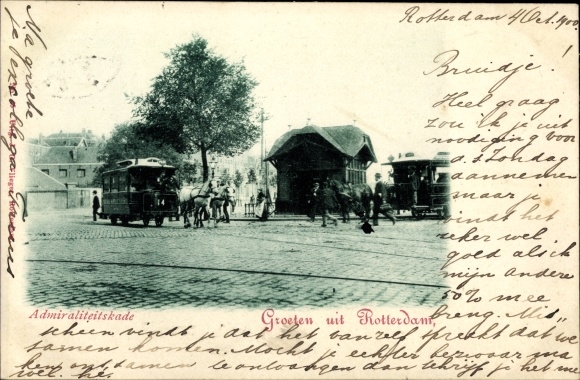 Rotterdam 4 Oct. 1900
Bruidje!
Heel graag
zou ik je uit
noodiging voor
a. s. Zondag
aannemen
maar je
vindt het
zeker wel
goed als ik
mijn andere
50% mee
breng. Mis
schien vindt je dat het van zelf spreekt dat we
samen komen. Mocht je echter bezwaar ma
ken ons samen te ontvangen dan schrijf je het me
wel. he.
Met groete
je
Admiraliteitskade
Groeten uit Rotterdam,
14